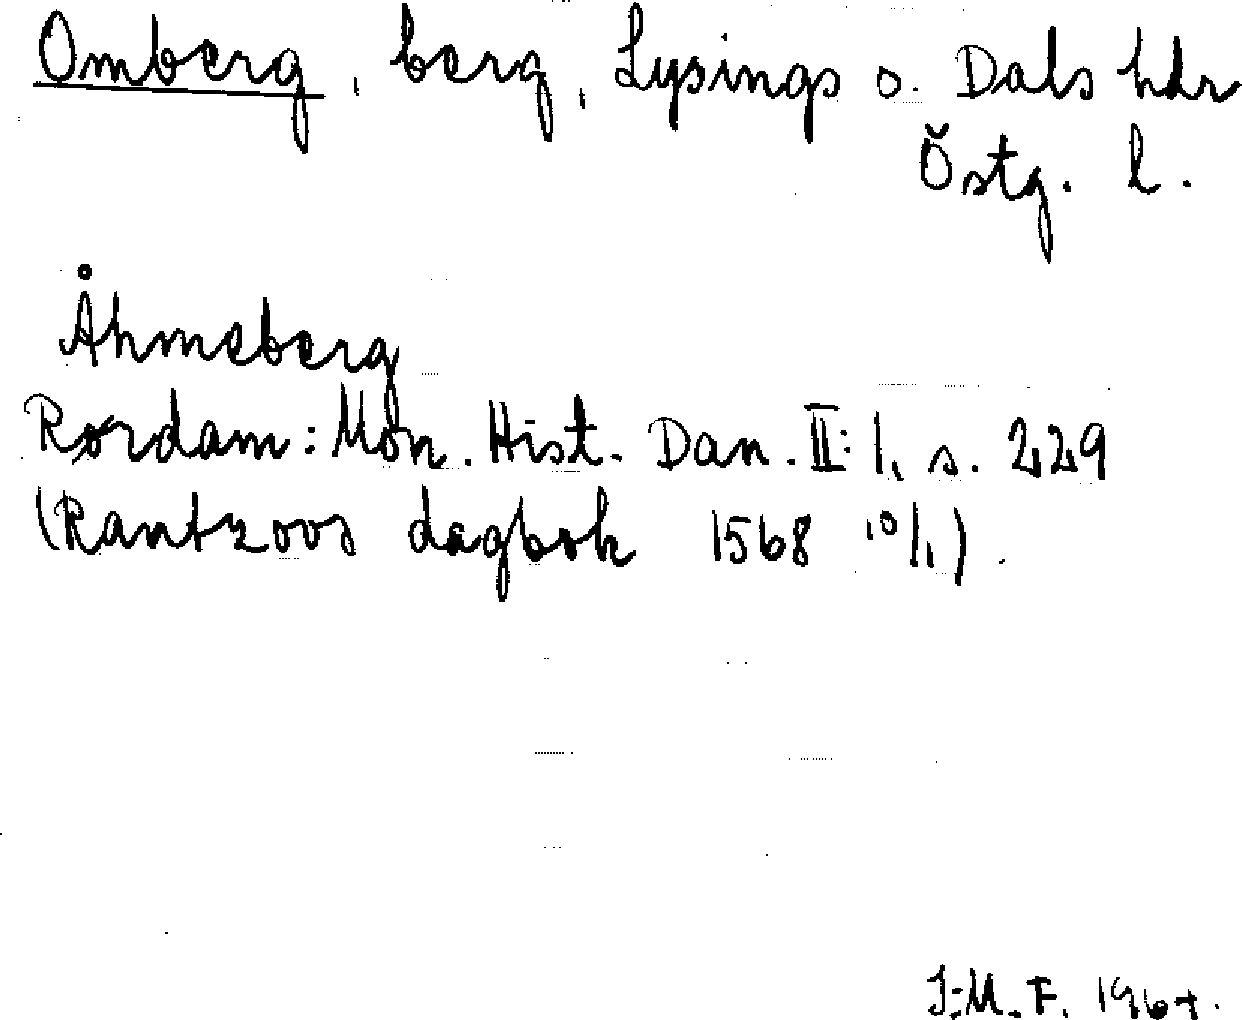 Omberg, berg, Lysings o. Dals hdr
Östg. l.
Åhmeberg
Rørdam: Mon. Hist. Dan. II: 1, s. 229
(Rantzoos dagbok 1568 10/1).
J.M.F. 1964.